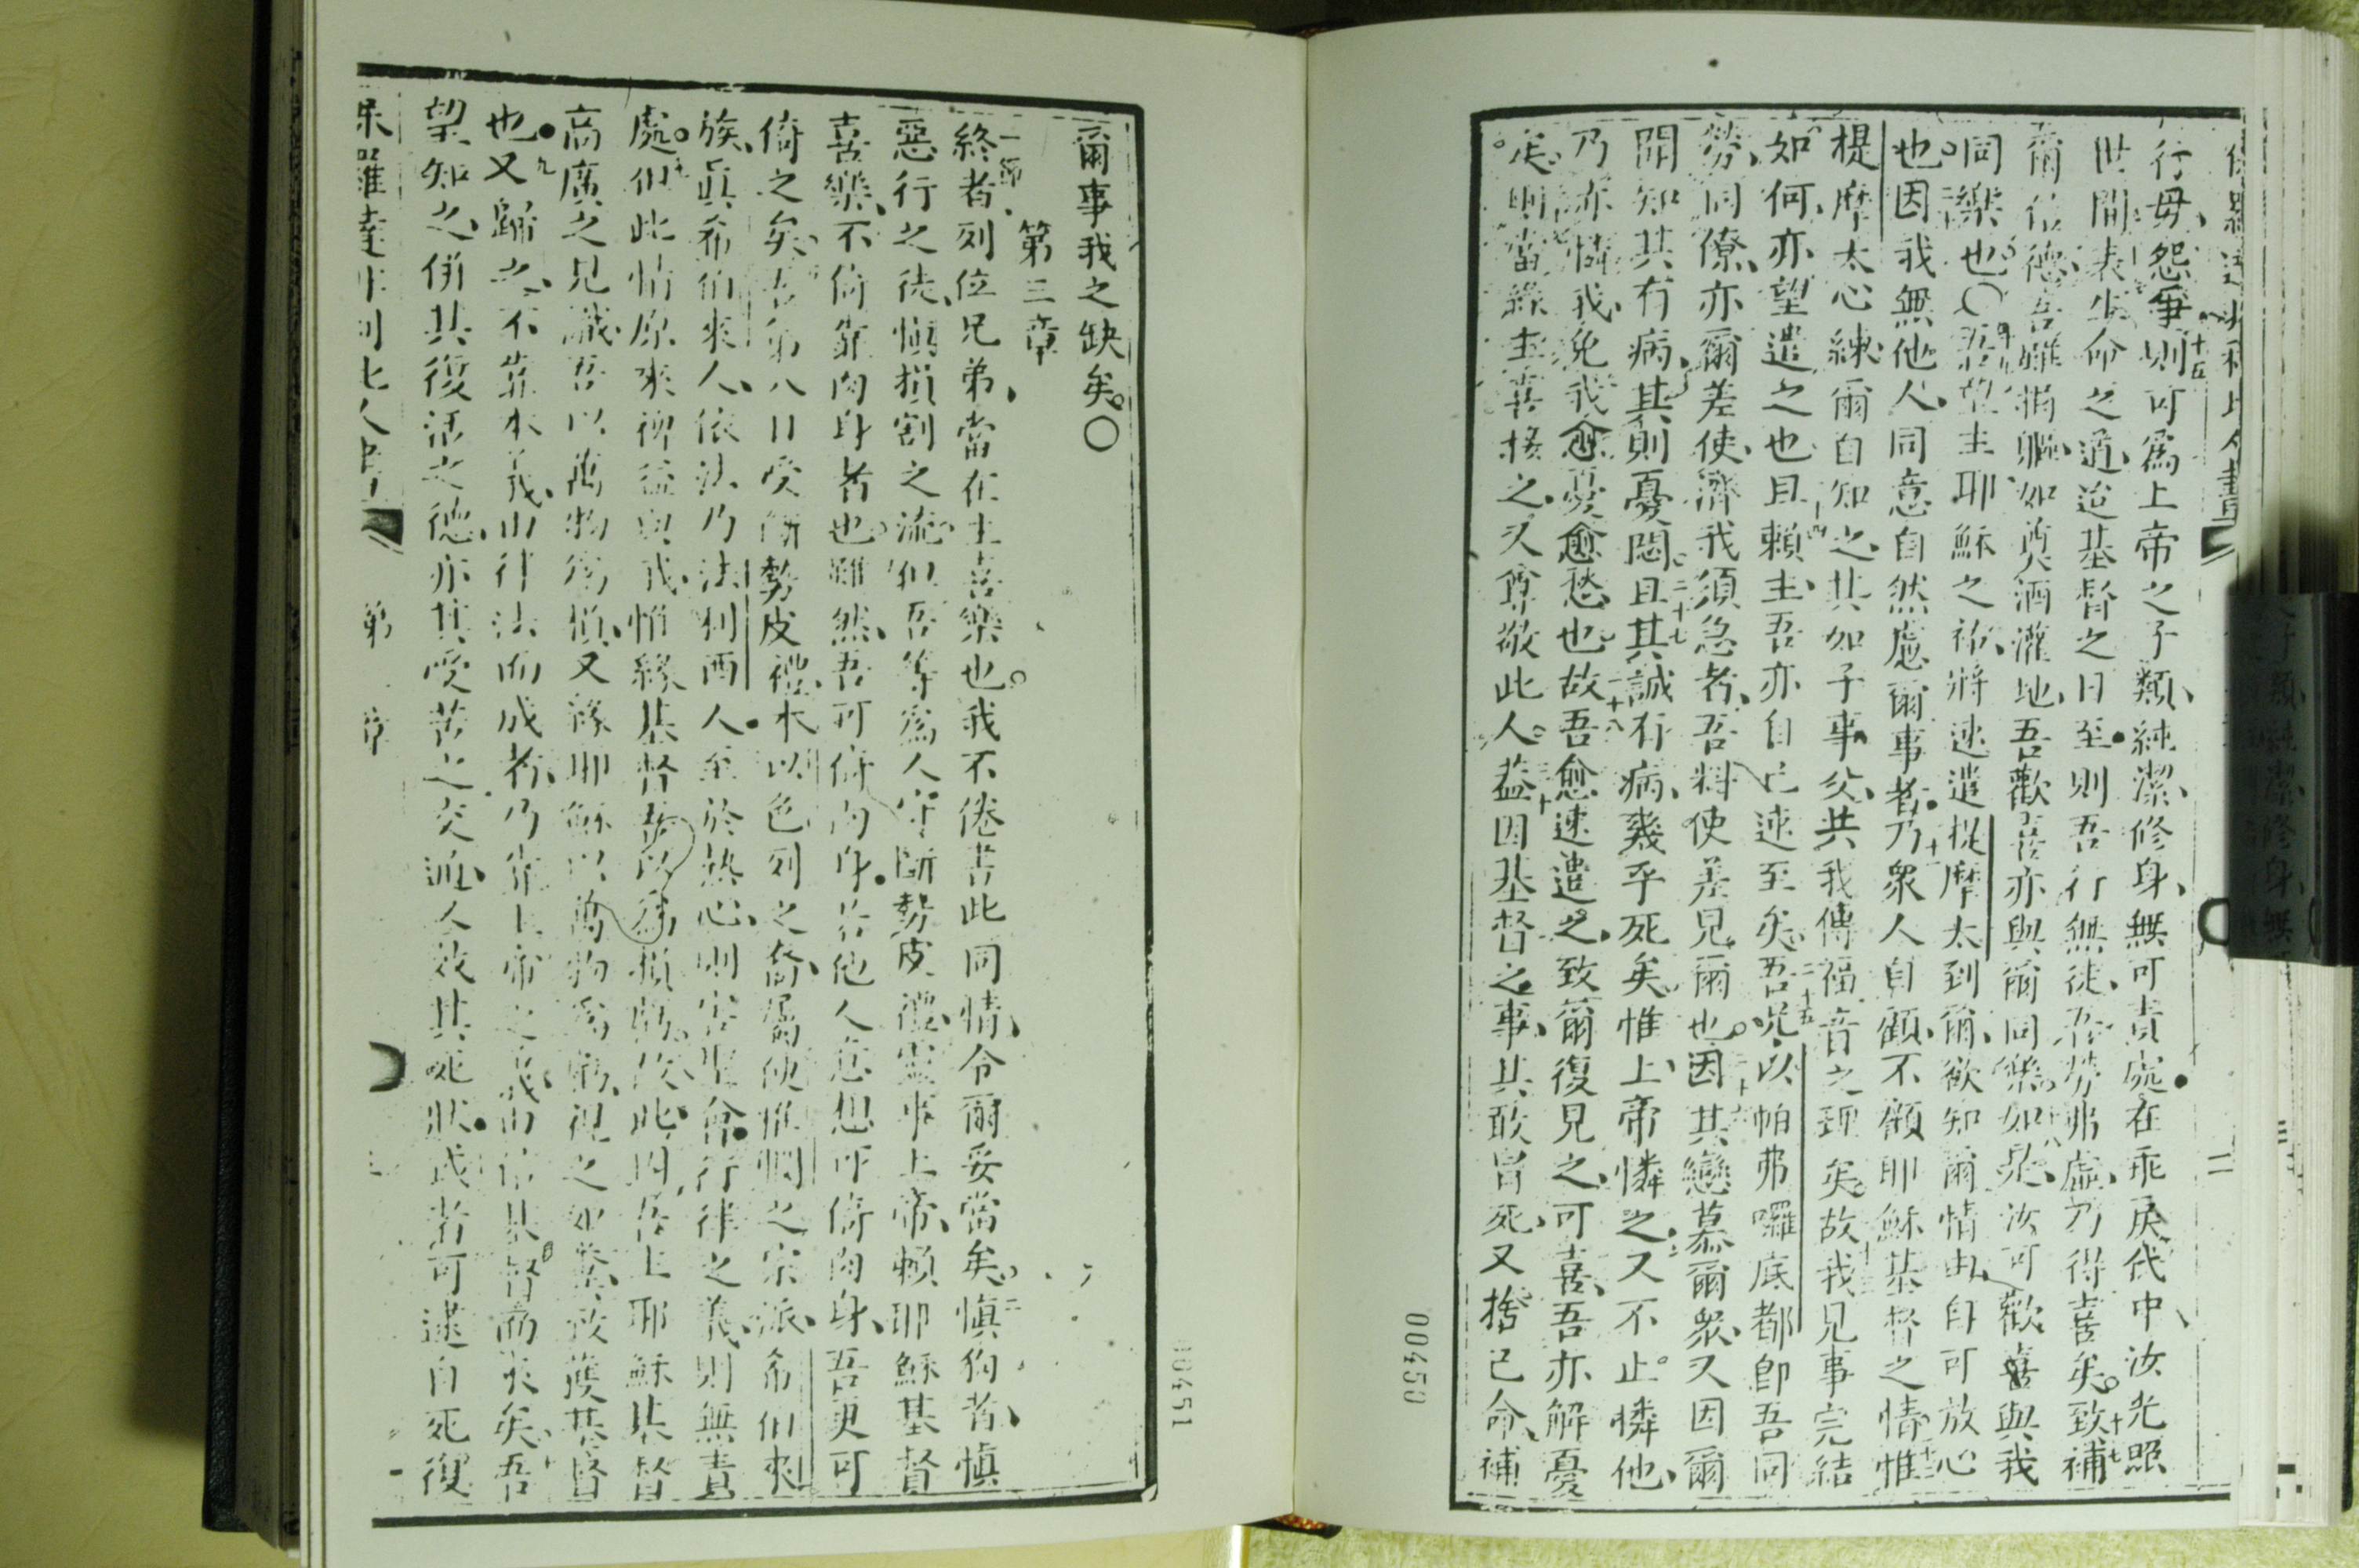 行毋怨爭、十五則可爲上帝之子類、純潔修身、無可責處•在乖戾代中、汝光照
世間、表生命之道迨基督之日至•則吾行無徒、吾勞弗虛、乃得喜矣。十七致補
爾信德、吾雖捐軀、如奠酒灌地、吾歡喜亦與爾同樂。如是、汝可歡喜與我
同樂也〇十九吾望主耶穌之祐、將速遣提摩太到爾、欲知爾情由、自可放心
也。因我無他人、同意自然慮爾事者•乃衆人自顧、不顧耶穌基督之情、惟
提摩太心練、爾自知之、其如子事父、共我傳福音之理矣。故我見事完結
如何、亦望遣之也且賴主、吾亦自己速至矣、二十五吾況以帕弗囉底都卽吾同
勞、同僚、亦爾差使、濟我須急者、吾料使差見爾也。因其戀慕爾衆、又因爾
聞知其有病、其則憂悶。二十七且其誠有病、幾乎死矣惟上帝憐之、又不止憐他、
乃亦憐我、免我愈憂愈愁也。故吾愈速遣之、致爾復見之、可喜、吾亦解憂
矣。則當緣主喜接之、又尊敬此人。三十蓋因基督之事、其敢冒死、又捨己命、補
00450
爾事我之缺矣。〇
第三章
一節終者、列位兄弟、當在主喜樂也。我不倦書此同情、令爾妥當矣。二愼狗者、愼
惡行之徒、愼損割之流。但吾等爲人守斷勢皮禮、靈事上帝、賴耶穌基督
喜樂、不倚靠肉身者也。雖然、吾可倚肉身•若他人意想可倚肉身、吾更可
倚之矣、吾第八日受斷勢皮禮、本以色列之裔、屬便惟憫之宗派、希伯來
族、眞希伯來人、依法乃法利西人•至於熱心、則害聖會•行律之義、則無責
處。但此情原來裨益與我、惟緣基督吾以爲損虧。故此、因吾主耶穌基督
高廣之見識、吾以萬物爲損、又緣耶穌以萬物爲虧、視之如糞、致獲基督
也•九又歸之、不靠本義、由律法而成者、乃靠上帝之義、由信基督而來矣、吾
望知之、併其復活之德、亦其受苦之交通、人效其死狀•或者可逮自死復
00451
第 章